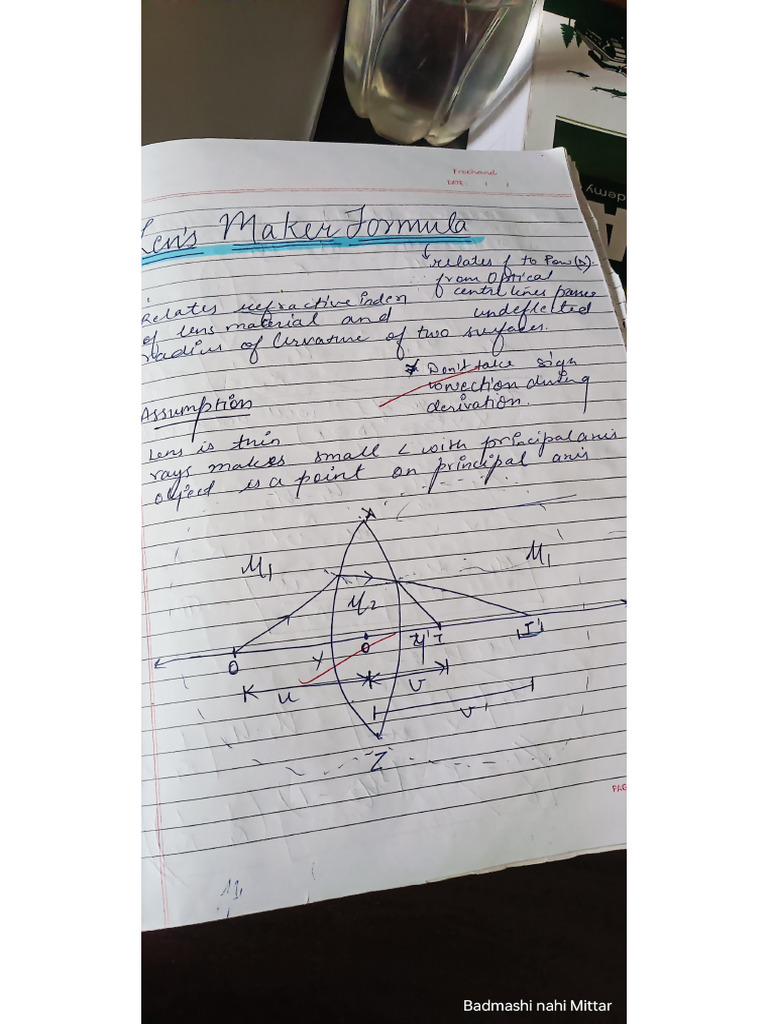 Freehand
DATE:
Len's Maker Formula
relates f to Pow(A).
from Optical
centre lines passes
undeflected
Relates refractive inden
of lens material and
radius of Curvature of two surfaces.
* Don't take sign
convection during
derivation.
Assumption
Lens is thin
rays makes small ∠ with principal axis
object is a point on principal axis
A
μ1
μ1
μ2
O
O
Y
Y'
I
I'
u
v
v'
Z
PAG
μ1
ademy
Badmashi nahi Mittar